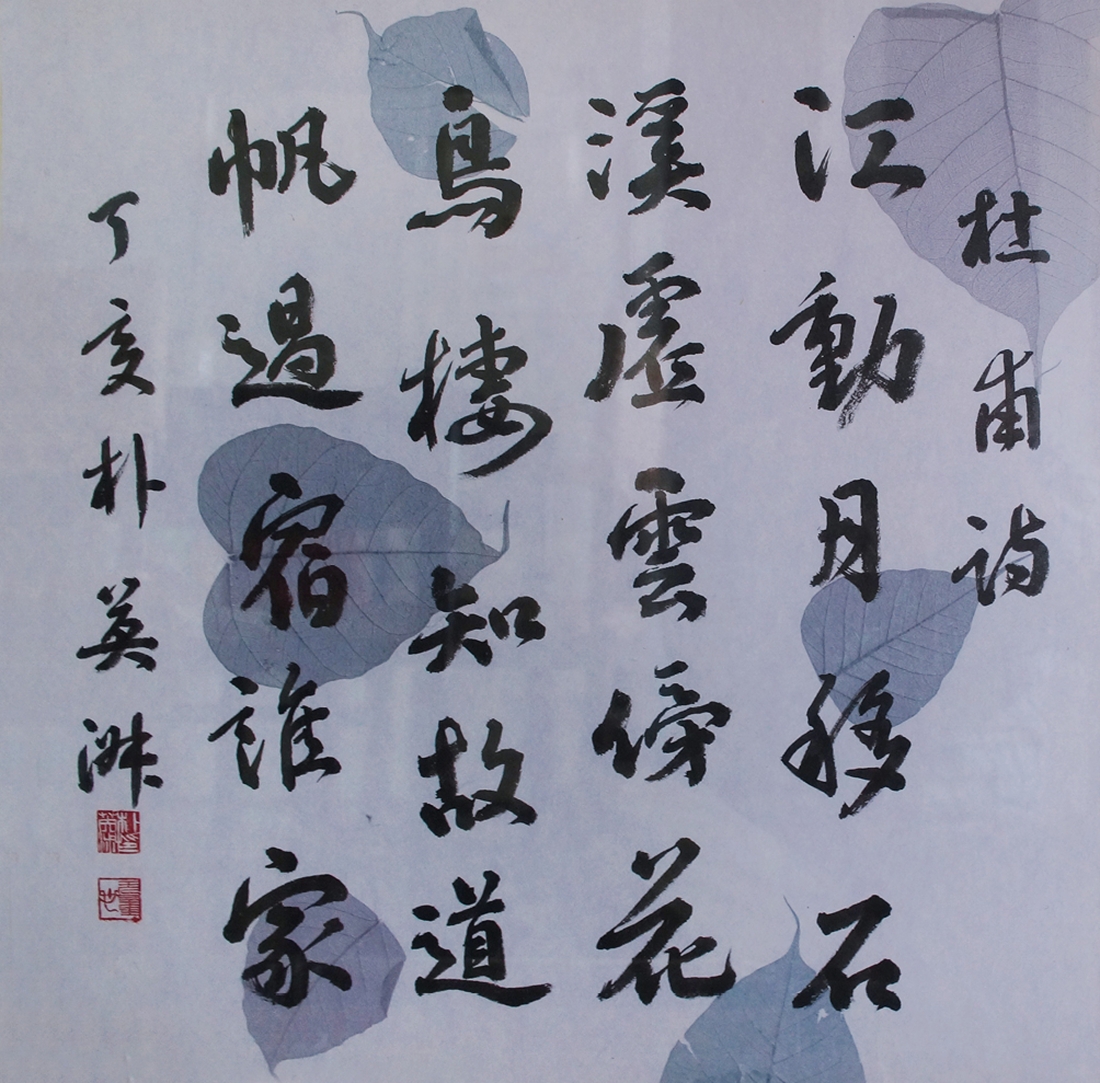 杜甫詩
江動月移石
溪虛雲傍花
鳥棲知故道
帆過宿誰家
丁亥朴英淑